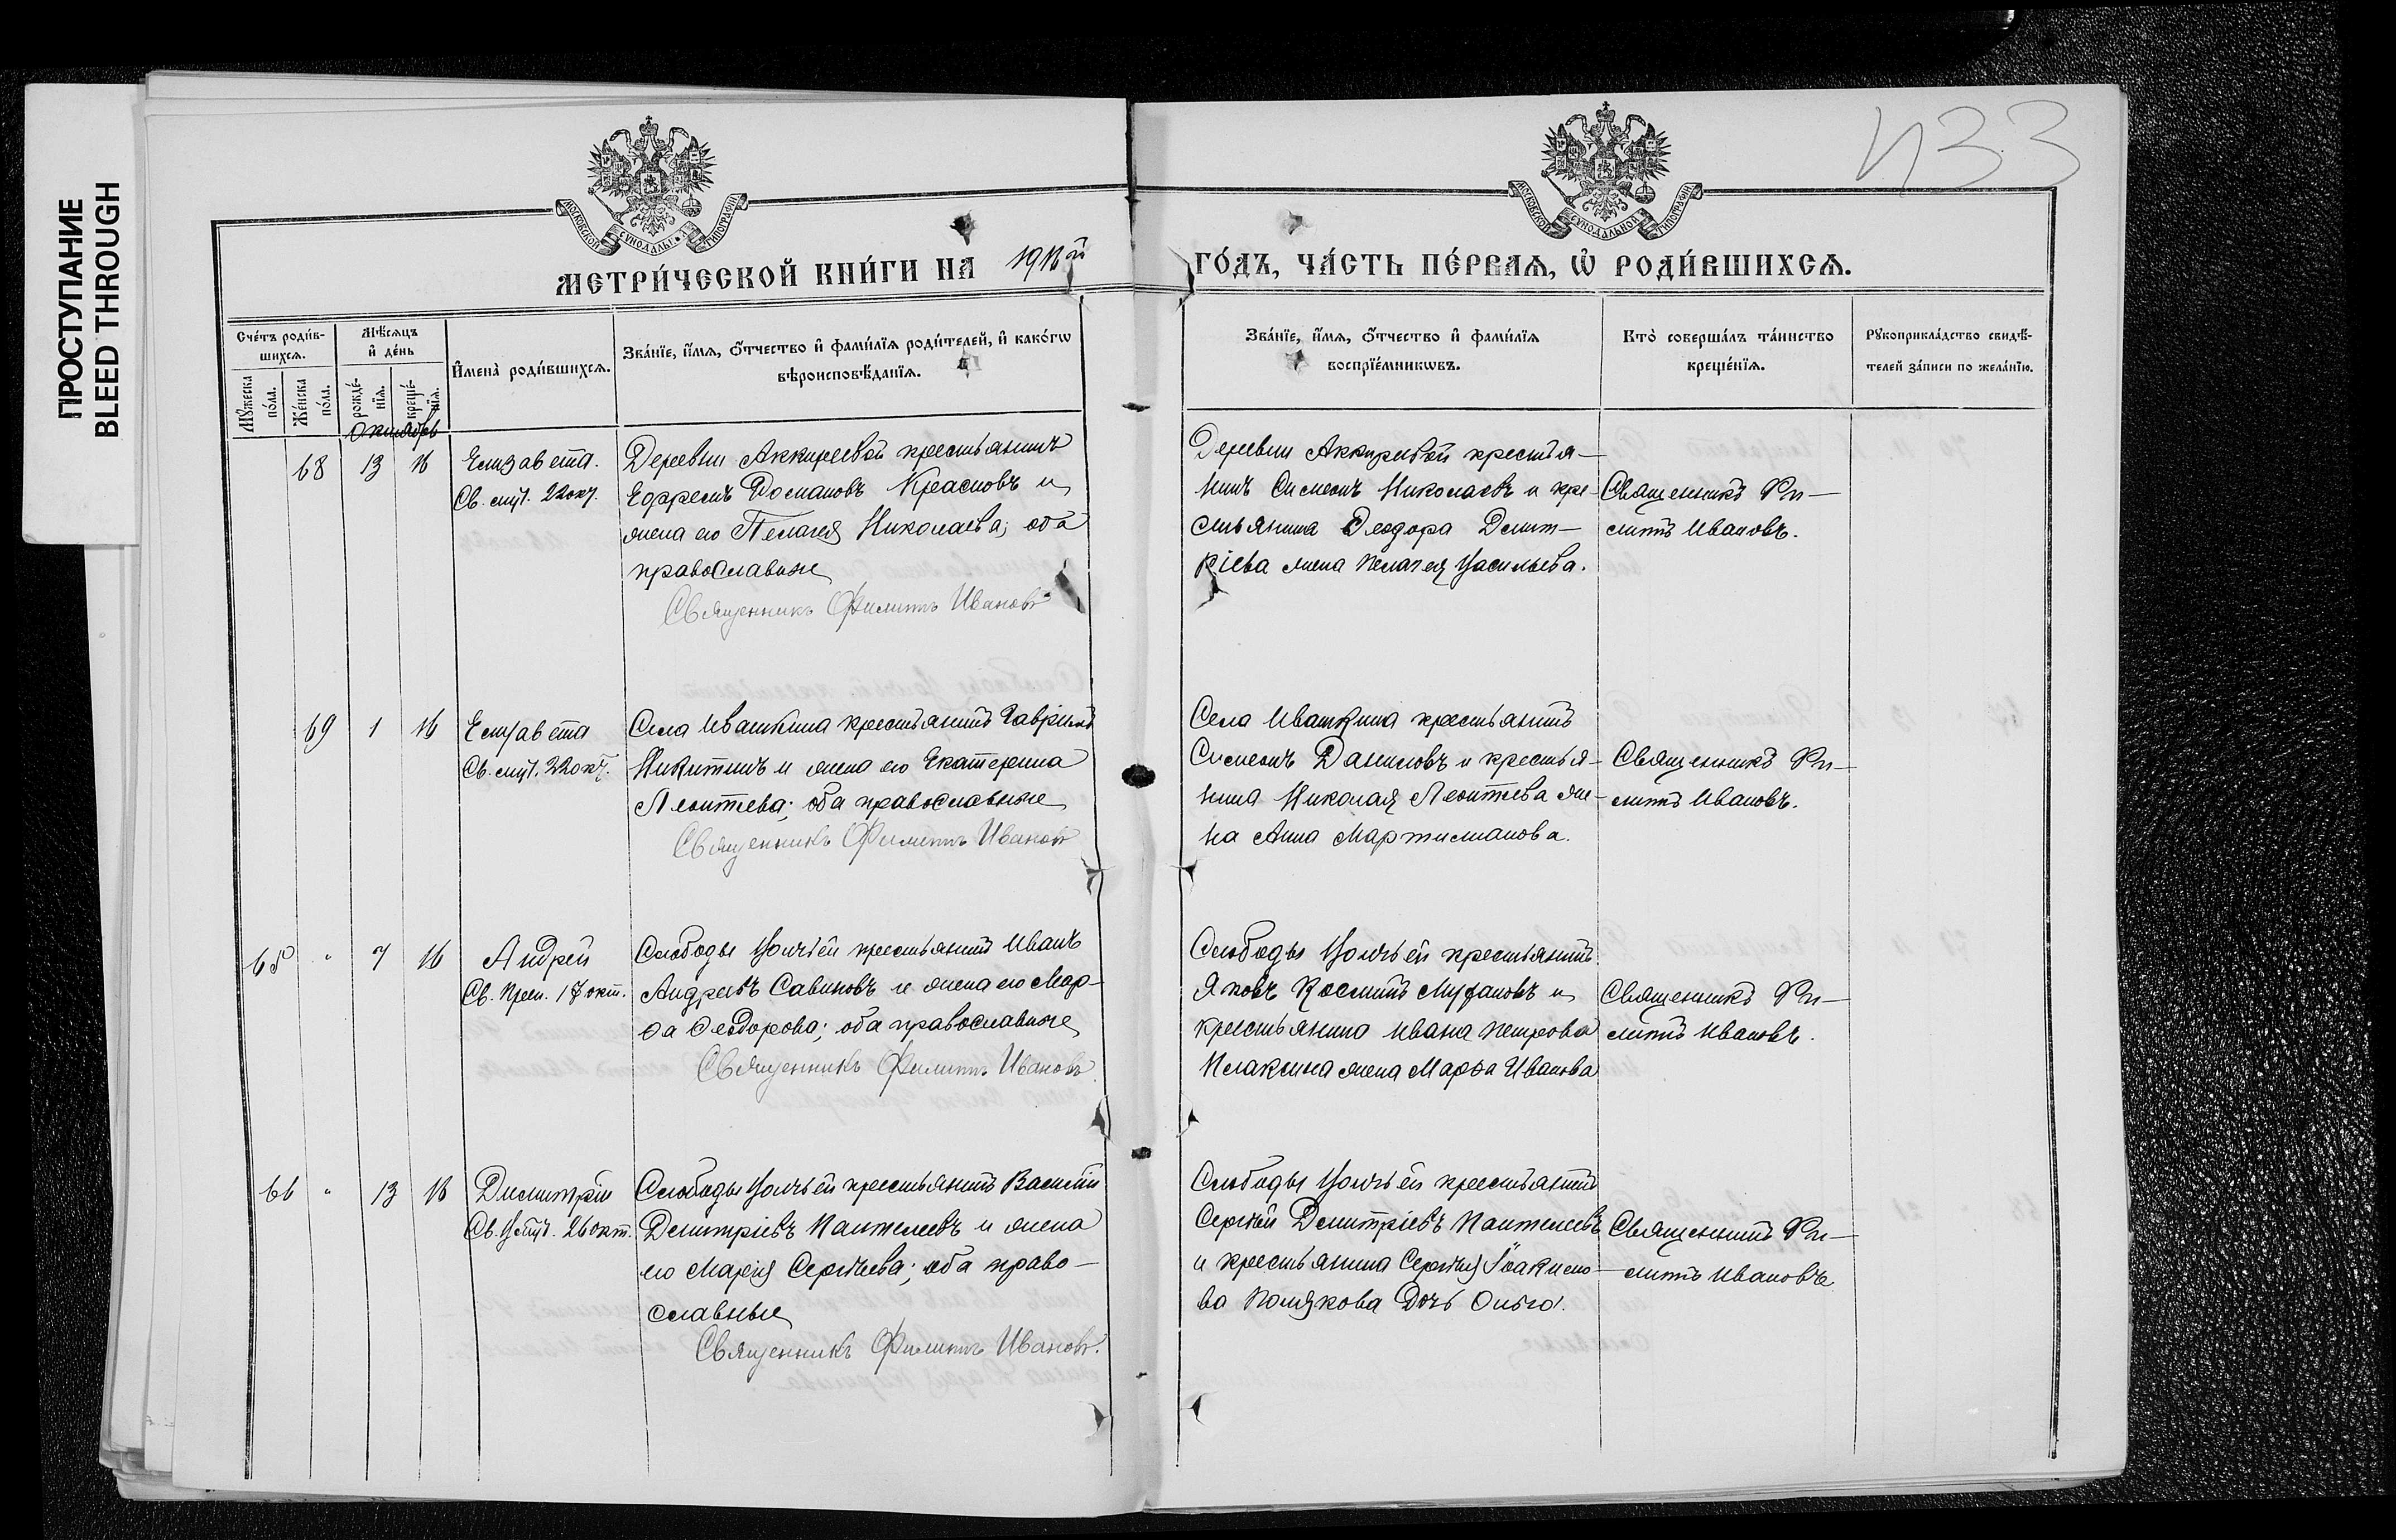 ПРОСТУПАНИЕ
BLEED THROUGH
433
МОСКОВСКОЙ СУНОДАЛЬНОЙ ТИПОГРАФІИ
МОСКОВСКОЙ СУНОДАЛЬНОЙ ТИПОГРАФІИ
МЕТРИ́ЧЕСКОЙ КНИ́ГИ НА
ГО́ДЪ, ЧА́СТЬ ПЕ́РВАѦ, Ѡ҆ РОДИ́ВШИХСѦ.
Сче́тъ роди́в-
шихсѧ.
Мꙋ́жеска по́ла.
Же́нска по́ла.
Мѣ́сѧцъ
и҆ де́нь
рожде́-нїѧ.
креще́-нїѧ.
И҆мена̀ роди́вшихсѧ.
Зва́нїе, и҆́мѧ, ѻ҆́тчество и҆ фами́лїѧ роди́телей, и҆ како́гѡ
вѣроисповѣ́данїѧ.
Зва́нїе, и҆́мѧ, ѻ҆́тчество и҆ фами́лїѧ
воспрїе́мникѡвъ.
Кто̀ соверша́лъ та́инство
креще́нїѧ.
Рꙋкоприкла́дство свидѣ́-
телей за́писи по жела́нїю.
Октябрь
68 13 16 Елизавета.
Св. 22 окт.
Деревни Аккиреевой крестьянинъ
Ефремъ Романовъ и
жена его Пелагея Николаева; оба
православные
Священникъ Филиппъ Ивановъ
Деревни Аккиревой крестья-
нинъ Симеонъ Николаевъ и кре-
стьянина Ѳеодора Димит-
ріева жена Пелагея Васильева.
Священникъ Фи-
липпъ Ивановъ.
69 1 16 Елизавета
Св. 22 окт.
Села Ивашкина крестьянинъ Гавріилъ
Никитинъ и жена его Екатерина
Леонтьева; оба православные
Священникъ Филиппъ Ивановъ
Села Ивашкина крестьянинъ
Симеонъ Даниловъ и крестья-
нина Николая Леонтьева же-
на Анна Мартиміанова.
Священникъ Фи-
липпъ Ивановъ.
65 " 7 16 Андрей
Св. Преп. 17 окт.
Слободы Волчьей крестьянинъ Иванъ
Андреевъ Савиновъ и жена его Мар-
ѳа Ѳеодорова; оба православные
Священникъ Филиппъ Ивановъ
Слободы Волчьей крестьянинъ
Яковъ Косминъ и
крестьянина Ивана Петрова
Плаксина жена Марѳа Иванова
Священникъ Фи-
липпъ Ивановъ.
66 " 13 16 Димитрій
Св. 26 окт.
Слободы Волчьей крестьянинъ Василій
Димитріевъ Пантелеевъ и жена
его Марія Сергіева; оба право-
славные
Священникъ Филиппъ Ивановъ.
Слободы Волчьей крестьянинъ
Сергѣй Димитріевъ Пантелеевъ
и крестьянина Сергѣя Іоакимо-
ва Полякова дочь Ольга.
Священникъ Фи-
липпъ Ивановъ